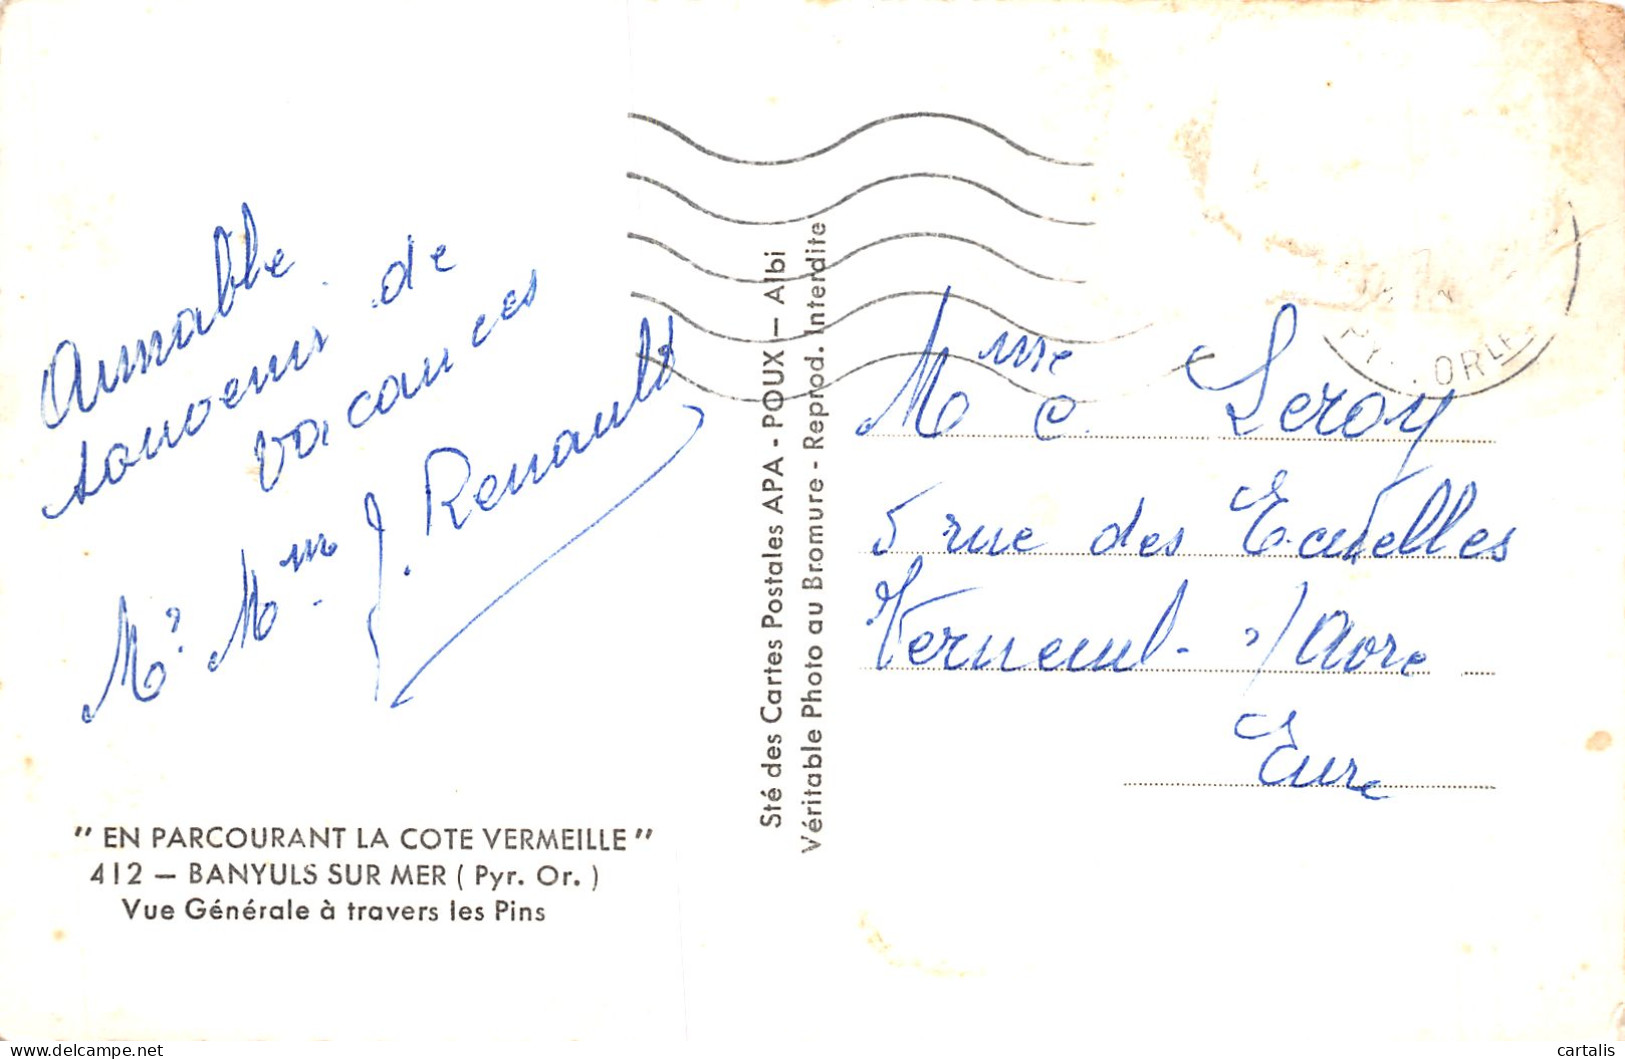 Aimable
souvenir de
vacances
Mr Mme J. Renault
" EN PARCOURANT LA COTE VERMEILLE "
412 — BANYULS SUR MER ( Pyr. Or. )
Vue Générale à travers les Pins
Sté des Cartes Postales APA - POUX — Albi
Véritable Photo au Bromure - Reprod. Interdite
PYR. ORLES
Mme C. Leroy
5 rue des Ecuelles
Verneuil s/Avre
Eure
cartalis